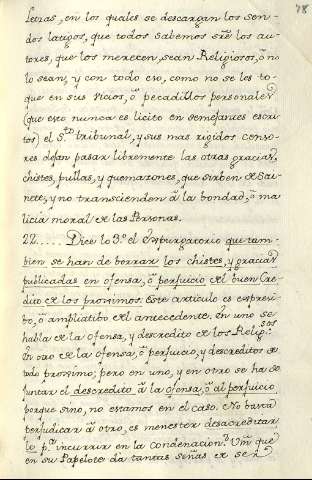 78
Letras, en los quales se descargan los sen-
dos latigos, que todos sabemos sre los au-
tores, que los merecen, sean Religiosos, ò no
lo sean, y con todo eso, como no se les to-
que en sus vicios, ò pecadillos personales
(que esto nunca es licito en semejantes escri-
tos) el Sto tribunal, y sus mas rigidos censo-
res dejan pasar libremente las otras gracias,
chistes, pullas, y quemazones, que sirben de Sai-
nete, y no transcienden à la bondad, ò ma
licia moral de las Personas.
22..... Dice lo 3.º el Expurgatorio que tam-
bien se han de borrar los chistes, y gracias
publicadas en ofensa, ò perjuicio del buen Cre-
dito de los proximos. Este articulo es expresi-
bo, ò ampliatibo del antecedente. En uno se
habla de la ofensa, y descredito de los Religsos
En otro de la ofensa, ò perjuicio, y descreditos de
todo proximo; pero en uno, y en otro se ha de
juntar el descredito à la ofensa, ò al perjuicio
porque sino, no estamos en el caso. No basta
perjudicar à otro, es menester desacreditar
lo pa incurrir en la condenacion. Vm que
en su Papelote da tantas señas de ser